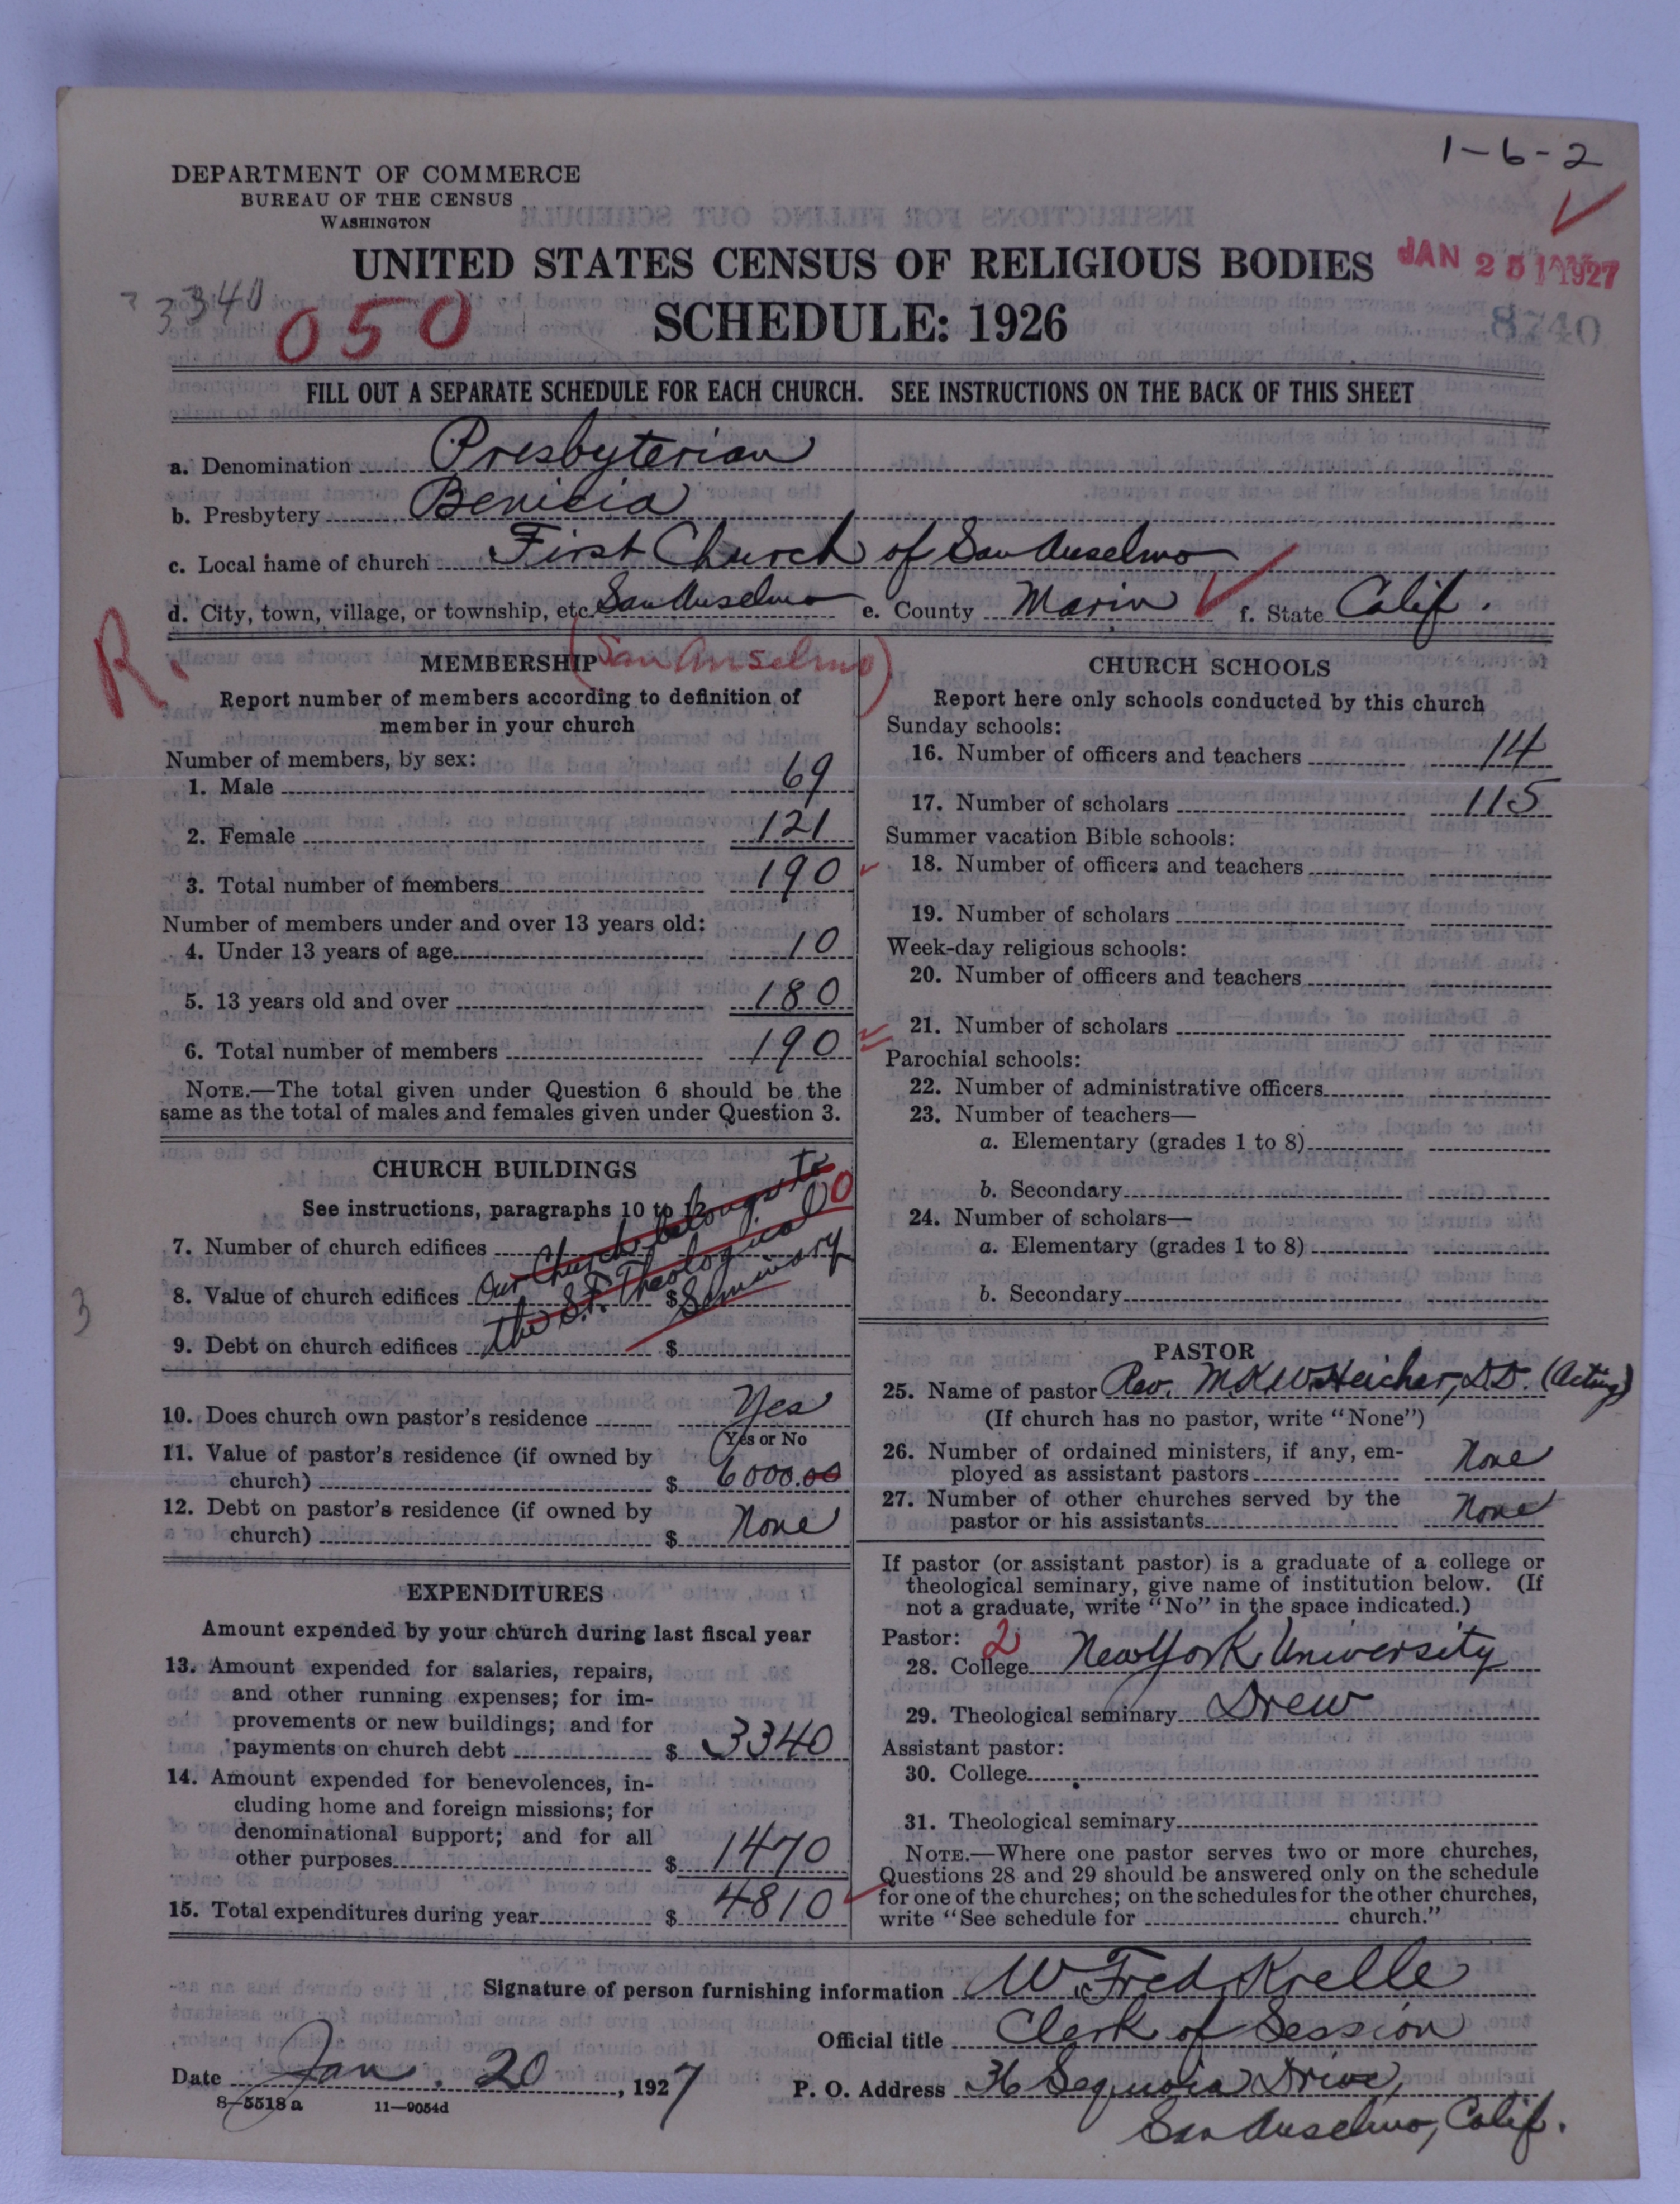 1-6-2
DEPARTMENT OF COMMERCE
BUREAU OF THE CENSUS
WASHINGTON
UNITED STATES CENSUS OF RELIGIOUS BODIES
JAN 25 1927
3340
050
SCHEDULE: 1926
8740
FILL OUT A SEPARATE SCHEDULE FOR EACH CHURCH. SEE INSTRUCTIONS ON THE BACK OF THIS SHEET
a. Denomination Presbyterian
b. Presbytery Benicia
c. Local name of church First Church of San Anselmo
d. City, town, village, or township, etc. San Anselmo e. County Marin f. State Calif.
R.
MEMBERSHIP (San Anselmo)
Report number of members according to definition of
member in your church
Number of members, by sex:
1. Male 69
2. Female 121
3. Total number of members 190
Number of members under and over 13 years old:
4. Under 13 years of age 10
5. 13 years old and over 180
6. Total number of members 190
NOTE.—The total given under Question 6 should be the
same as the total of males and females given under Question 3.
CHURCH BUILDINGS
See instructions, paragraphs 10 to 12
7. Number of church edifices 0
8. Value of church edifices $
Our Church belongs to
the S.F. Theological
Seminary
9. Debt on church edifices $
3
10. Does church own pastor's residence Yes
Yes or No
11. Value of pastor's residence (if owned by
church) $ 6000.00
12. Debt on pastor's residence (if owned by
church) $ None
EXPENDITURES
Amount expended by your church during last fiscal year
13. Amount expended for salaries, repairs,
and other running expenses; for im-
provements or new buildings; and for
payments on church debt $ 3340
14. Amount expended for benevolences, in-
cluding home and foreign missions; for
denominational support; and for all
other purposes $ 1470
15. Total expenditures during year $ 4810
CHURCH SCHOOLS
Report here only schools conducted by this church
Sunday schools:
16. Number of officers and teachers 14
17. Number of scholars 115
Summer vacation Bible schools:
18. Number of officers and teachers
19. Number of scholars
Week-day religious schools:
20. Number of officers and teachers
21. Number of scholars
Parochial schools:
22. Number of administrative officers
23. Number of teachers—
a. Elementary (grades 1 to 8)
b. Secondary
24. Number of scholars—
a. Elementary (grades 1 to 8)
b. Secondary
PASTOR
25. Name of pastor Rev. M K W Heicher, D.D. (Acting)
(If church has no pastor, write "None")
26. Number of ordained ministers, if any, em-
ployed as assistant pastors None
27. Number of other churches served by the
pastor or his assistants None
If pastor (or assistant pastor) is a graduate of a college or
theological seminary, give name of institution below. (If
not a graduate, write "No" in the space indicated.)
Pastor: 2
28. College New York University
29. Theological seminary Drew
Assistant pastor:
30. College
31. Theological seminary
NOTE.—Where one pastor serves two or more churches,
Questions 28 and 29 should be answered only on the schedule
for one of the churches; on the schedules for the other churches,
write "See schedule for church."
Signature of person furnishing information W. Fred Krelle
Official title Clerk of Session
Date Jan. 20, 1927
P. O. Address 36 Sequoia Drive,
San Anselmo, Calif.
8-5518 a 11-9054d